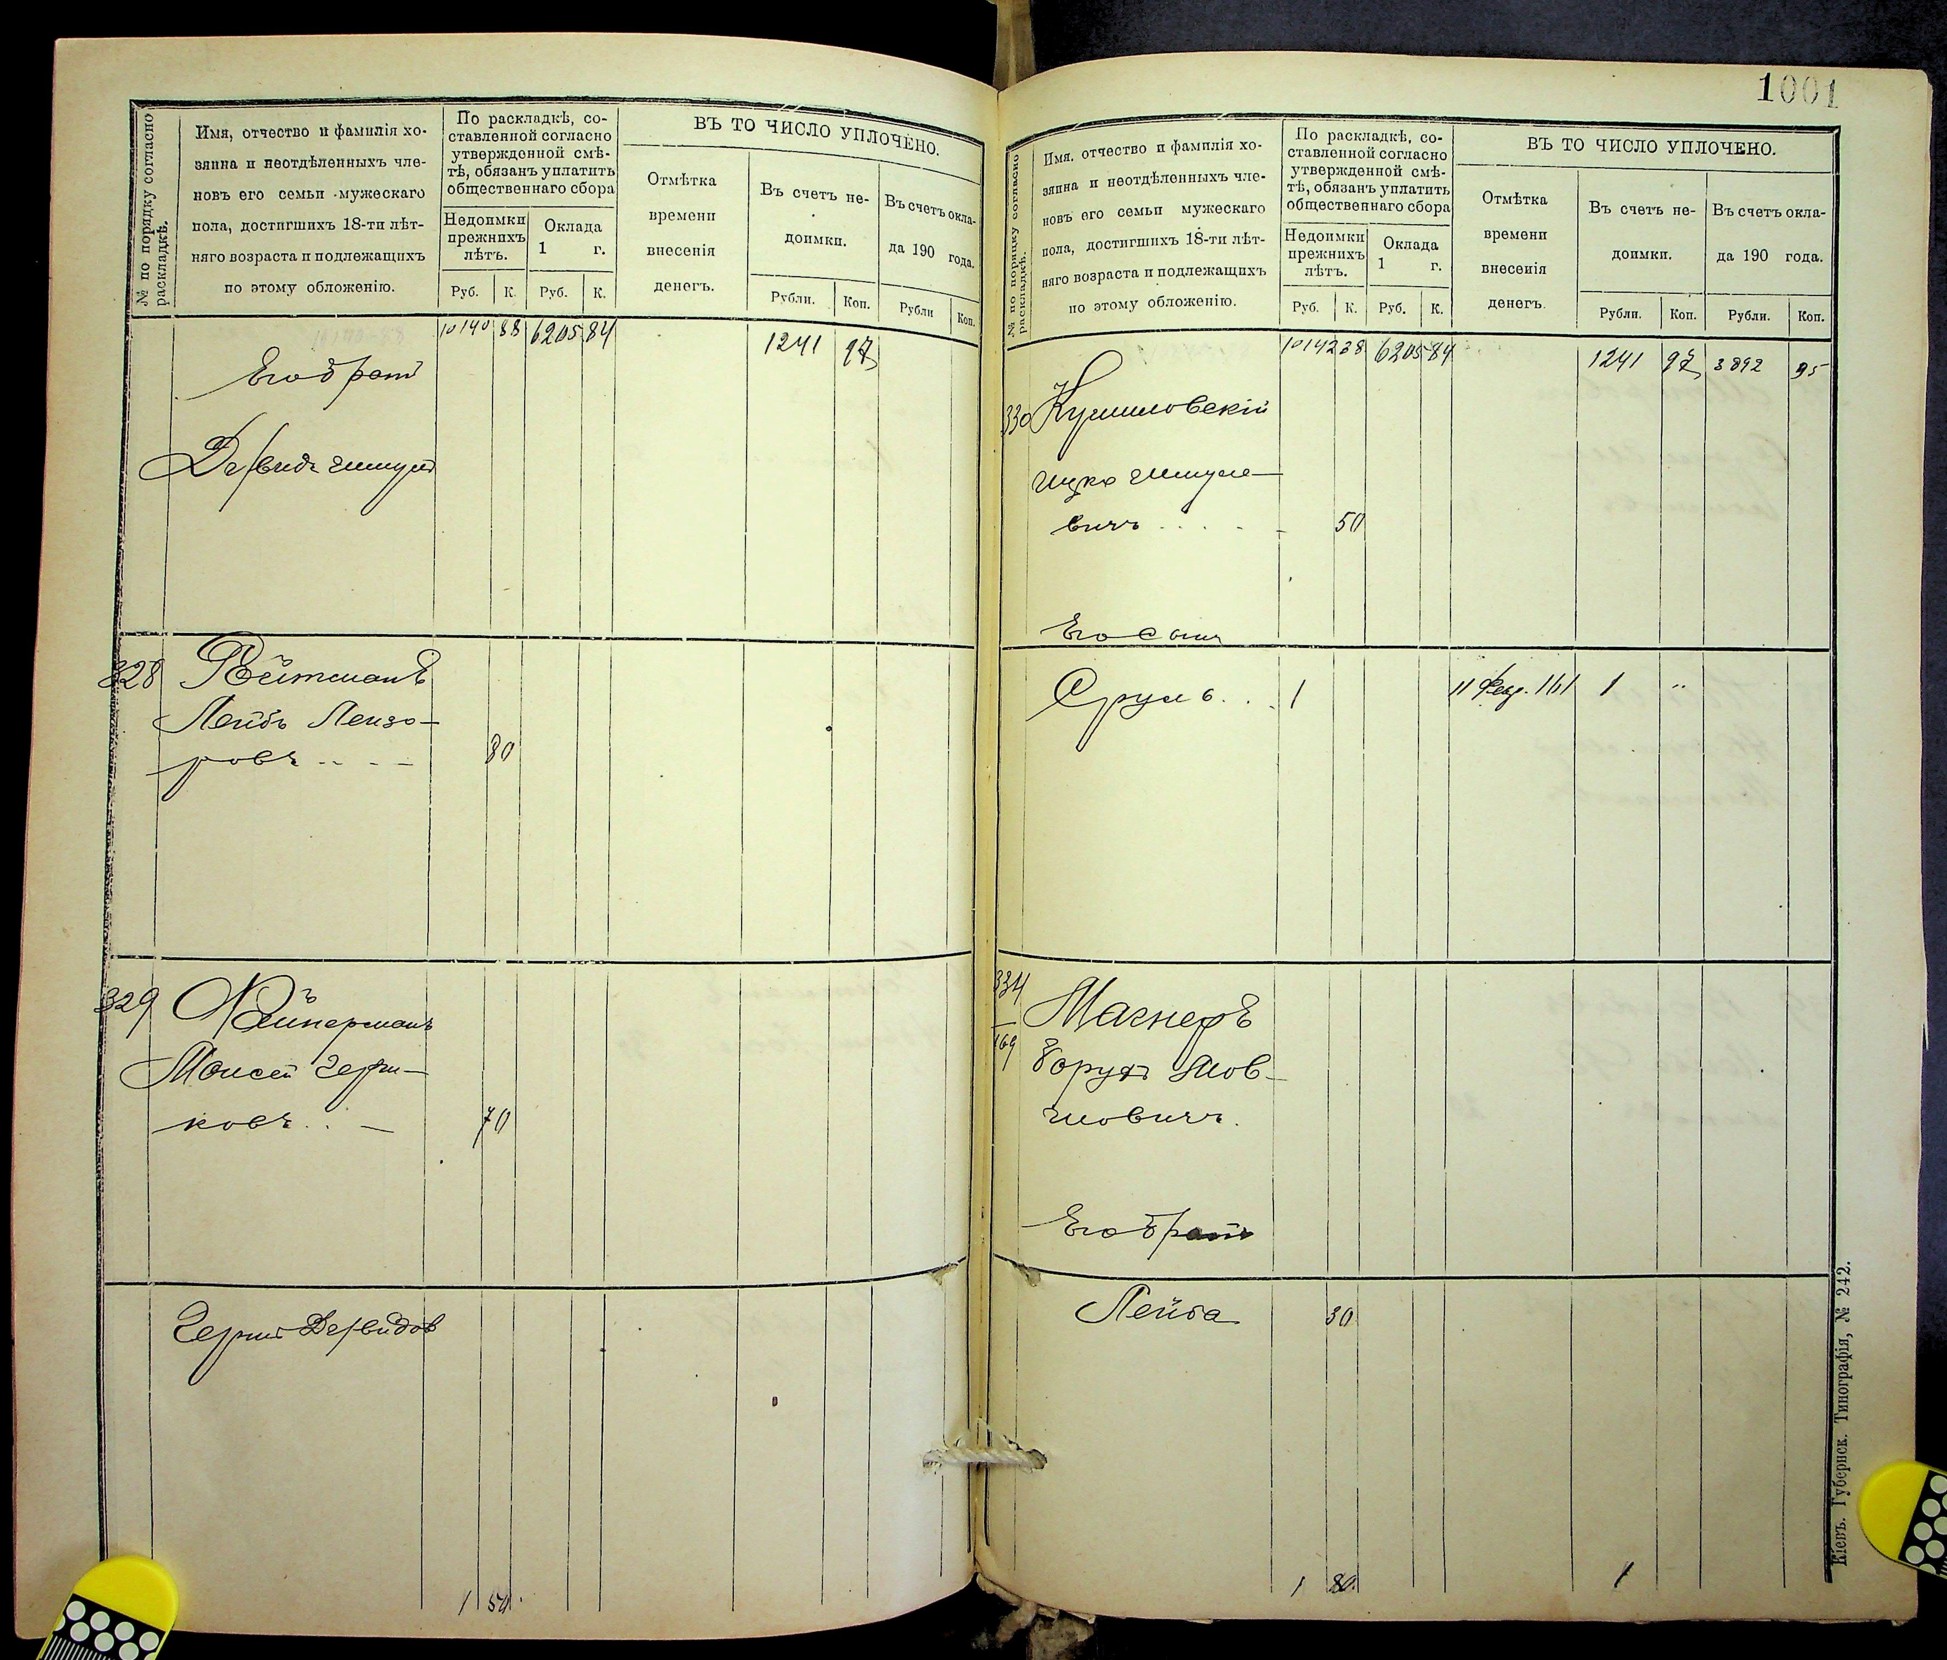 № по порядку согласно
раскладкѣ.
Имя, отчество и фамилія хо-
зяина и неотдѣленныхъ чле-
новъ его семьи мужескаго
пола, достигшихъ 18-ти лѣт-
няго возраста и подлежащихъ
по этому обложенію.
По раскладкѣ, со-
ставленной согласно
утвержденной смѣ-
тѣ, обязанъ уплатить
общественнаго сбора
Недоимки
прежнихъ
лѣтъ.
Оклада
1 г.
Руб. К. Руб. К.
ВЪ ТО ЧИСЛО УПЛОЧЕНО.
Отмѣтка
времени
внесенія
денегъ.
Въ счетъ не-
доимки.
Рубли. Коп.
Въ счетъ окла-
да 190 года.
Рубли Коп.
10140 88 6205 84 1241 97
Его братъ
Давидъ
328 Вейтманъ
Лейбъ Лейзо-
ровъ 80
329
Моисей Герш-
ковъ 70
Гершъ Давидов
1 50
1001
№ по порядку согласно
раскладкѣ.
Имя, отчество и фамилія хо-
зяина и неотдѣленныхъ чле-
новъ его семьи мужескаго
пола, достигшихъ 18-ти лѣт-
няго возраста и подлежащихъ
по этому обложенію.
По раскладкѣ, со-
ставленной согласно
утвержденной смѣ-
тѣ, обязанъ уплатить
общественнаго сбора
Недоимки
прежнихъ
лѣтъ.
Оклада
1 г.
Руб. К. Руб. К.
ВЪ ТО ЧИСЛО УПЛОЧЕНО.
Отмѣтка
времени
внесенія
денегъ.
Въ счетъ не-
доимки.
Рубли. Коп.
Въ счетъ окла-
да 190 года.
Рубли. Коп.
10142 38 6205 84 1241 97 3892 95
330
Ицко Шмуле-
вичъ 50
Его сынъ
Сруль 1 11 Февр. 161 1 "
334
169
Магнеръ
Борухъ Шов-
мовичъ.
Его братъ
Лейба 30
1 80 1
Кіевъ. Губернск. Типографія, № 242.